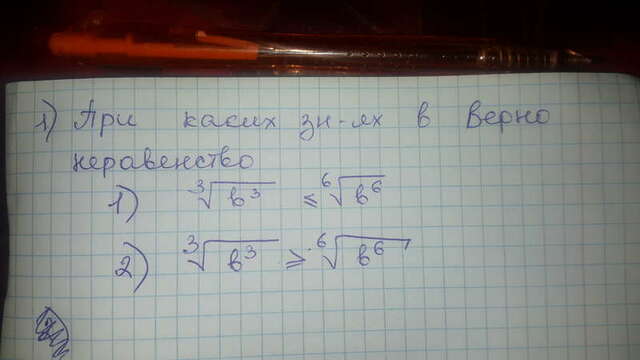 1) При каких зн-ях в верно
неравенство
1) ∛в³ ≤ ⁶√в⁶
2) ∛в³ ≥ ⁶√в⁶